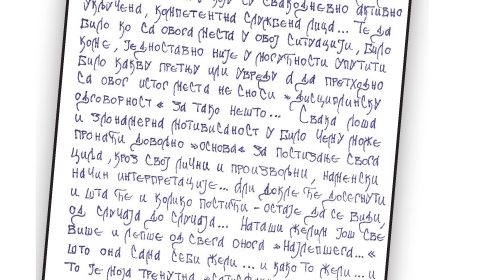 су свакодневно активно
укључена, компетентна службена лица... Те да
било ко са овога места у овој ситуацији, било
коме, једноставно није у могућности упутити
било какву претњу или увреду а да претходно
са овог истог места не сноси "дисциплинску
одговорност" за тако нешто... Свака лоша
и злонамерна мотивисаност у било чему може
пронаћи довољно "основа" за постизање свога
циља, кроз свој лични и произвољни, наменски
начин интерпретације... Али докле ће досегнути
и шта ће и колико постићи - остаје да се види,
од случаја до случаја... Наташи желим још све
више и лепше од свега онога "најлепшега..."
што она сама себи жели... и како то жели... и
То је моја тренутна